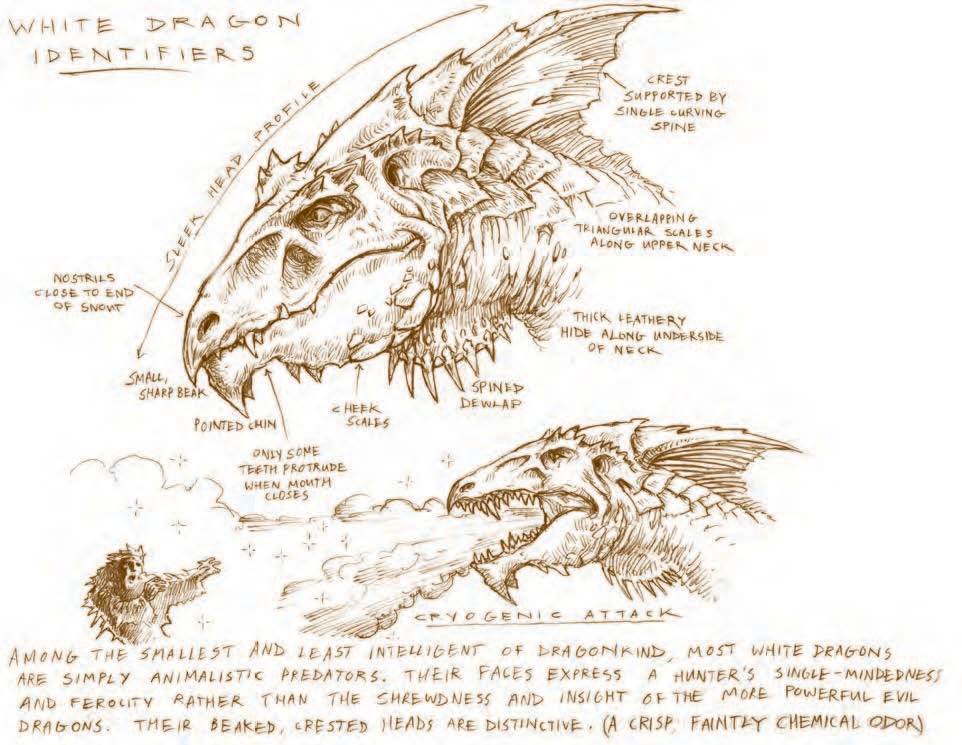 WHITE DRAGON
IDENTIFIERS
SLEEK HEAD PROFILE
CREST
SUPPORTED BY
SINGLE CURVING
SPINE
OVERLAPPING
TRIANGULAR SCALES
ALONG UPPER NECK
NOSTRILS
CLOSE TO END
OF SNOUT
THICK LEATHERY
HIDE ALONG UNDERSIDE
OF NECK
SMALL,
SHARP BEAK
SPINED
DEWLAP
POINTED CHIN
CHEEK
SCALES
ONLY SOME
TEETH PROTRUDE
WHEN MOUTH
CLOSES
CRYOGENIC ATTACK
AMONG THE SMALLEST AND LEAST INTELLIGENT OF DRAGONKIND, MOST WHITE DRAGONS
ARE SIMPLY ANIMALISTIC PREDATORS. THEIR FACES EXPRESS A HUNTER'S SINGLE-MINDEDNESS
AND FEROCITY RATHER THAN THE SHREWDNESS AND INSIGHT OF THE MORE POWERFUL EVIL
DRAGONS. THEIR BEAKED, CRESTED HEADS ARE DISTINCTIVE. (A CRISP, FAINTLY CHEMICAL ODOR)